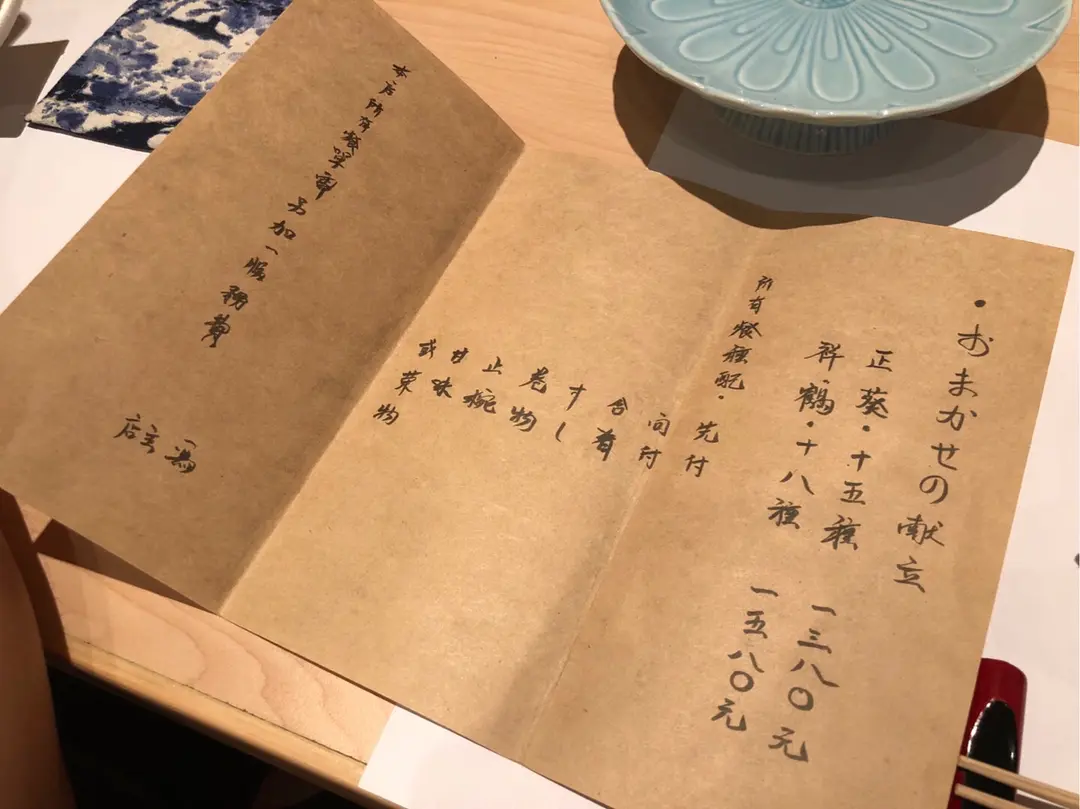 ・おまかせの献立
正葵・十五種 一三八〇元
祥鶴・十八種 一五八〇元
所有餐種配・先付
向付
合肴
すし
巻物
止椀
甘味
或菓物
本店所有餐單需另加一服務費
店主 馮